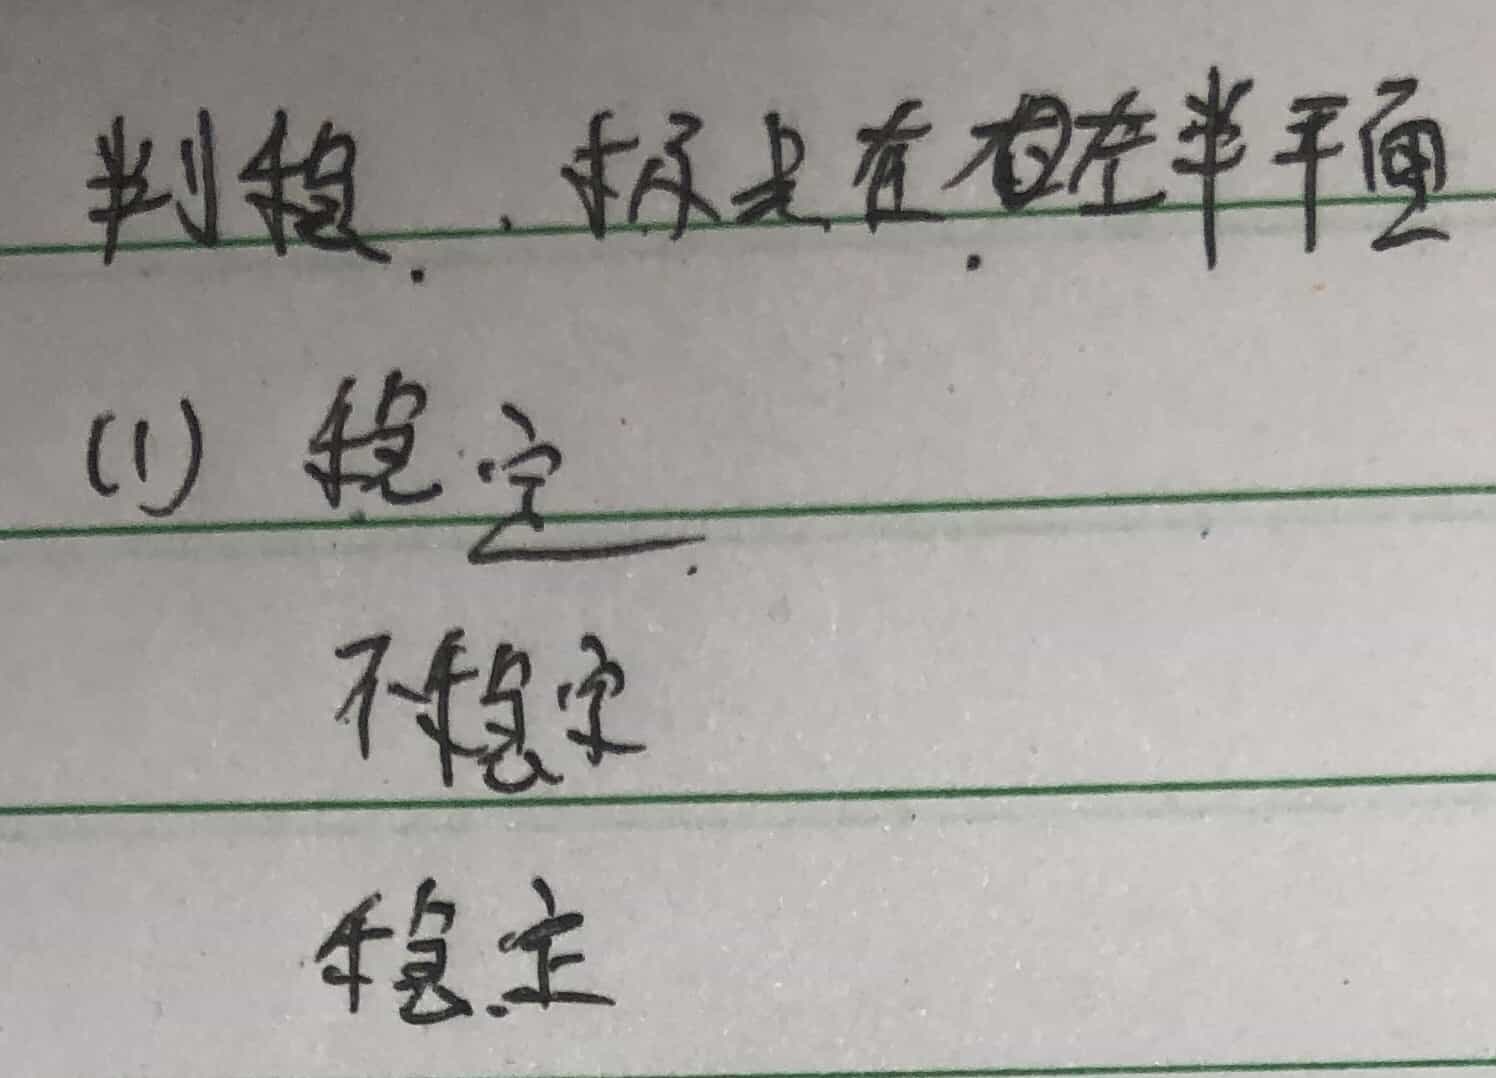 判稳. 极点在左半平面
(1) 稳定
不稳定
稳定